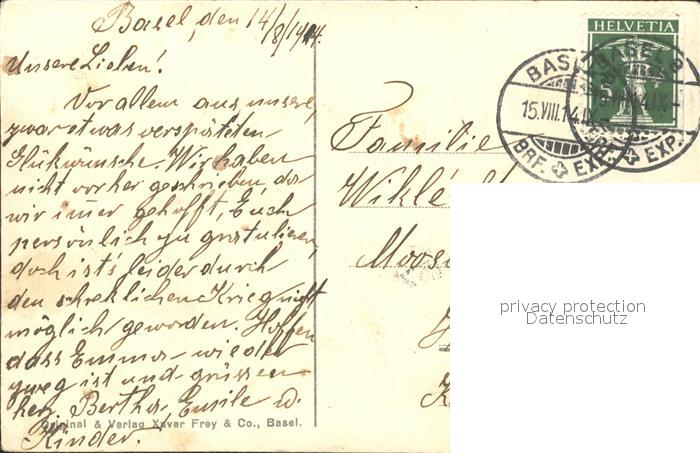 Basel, den 14/8/1914.
Unsere Lieben!
Vor allem aus unsere,
zwar etwas verspäteten
Glükwünsche. Wir haben
nicht vorher geschrieben, da
wir im̄er gehofft, Euch
persönlich zu gratulieren,
doch ist's leider durch
den schreklichen Krieg nicht
möglich geworden. Hoffen
dass Emma wieder
zweg ist und grüssen
herz. Bertha, Emile u.
Kinder.
Original & Verlag Xaver Frey & Co., Basel.
HELVETIA
5
BASEL
15.VIII.14.IX-
BRF. EXP.
BASEL 8
BRF. EXP.
Familie
Moos
privacy protection
Datenschutz